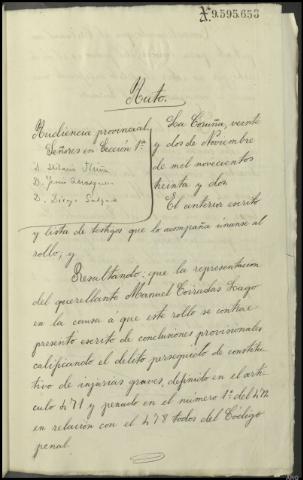 9.595.653
Auto.
Audiencia provincial
Señores en Sección 1ª.
D.
D. Jesús
D. Diego Salgado
La Coruña, veinte
y dos de Noviembre
de mil novecientos
treinta y dos
El anterior escrito
y lista de testigos que lo acompaña únanse al
rollo; y
Resultando: que la representación
del querellante Manuel Tago
en la causa á que este rollo se contrae
presentó escrito de conclusiones provisionales
calificando el delito perseguido de constitu-
tivo de injurias graves, definido en el artí-
culo 471 y penado en el número 1º del 472
en relación con el 478 todos del Código
penal.